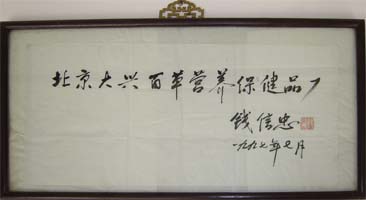 北京大兴百草营养保健品厂
钱信忠
一九九七年七月